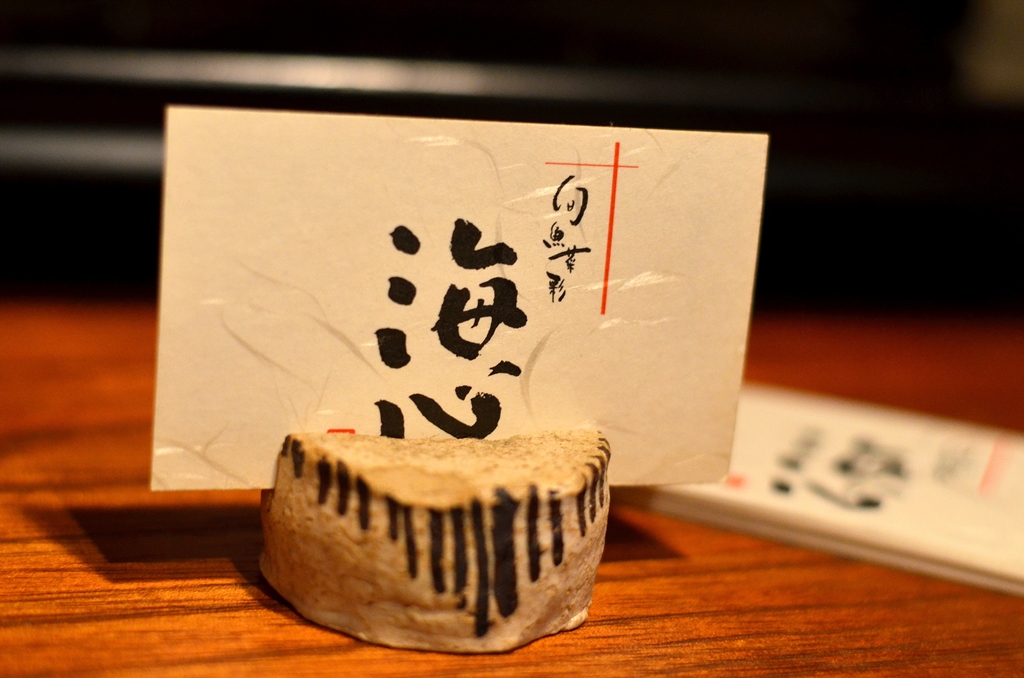 旬魚菜彩
海心